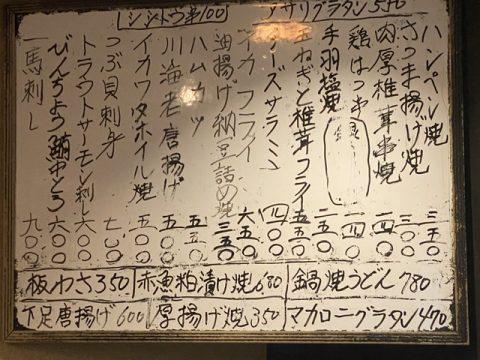 アサリグラタン 570
シシトウ串 100
ハンペン焼 三五〇
さつま揚げ焼 三〇〇
肉厚椎茸串焼 一四〇
鶏はつ串 一四〇
手羽塩焼 二五〇
玉ねぎと椎茸フライ 五〇〇
チーズサラミ 四〇〇
イカフライ 六五〇
油揚げ納豆詰め焼 三五〇
ハムカツ 五五〇
川海老唐揚げ 五〇〇
イカワタホイル焼 五〇〇
つぶ貝刺身 七三〇
トラウトサーモン刺し 六〇〇
びんちょう鮪中とろ 六〇〇
馬刺し 九〇〇
板わさ 350
赤魚粕漬け焼 680
鍋焼うどん 780
下足唐揚げ 600
厚揚げ焼 350
マカロニグラタン 470